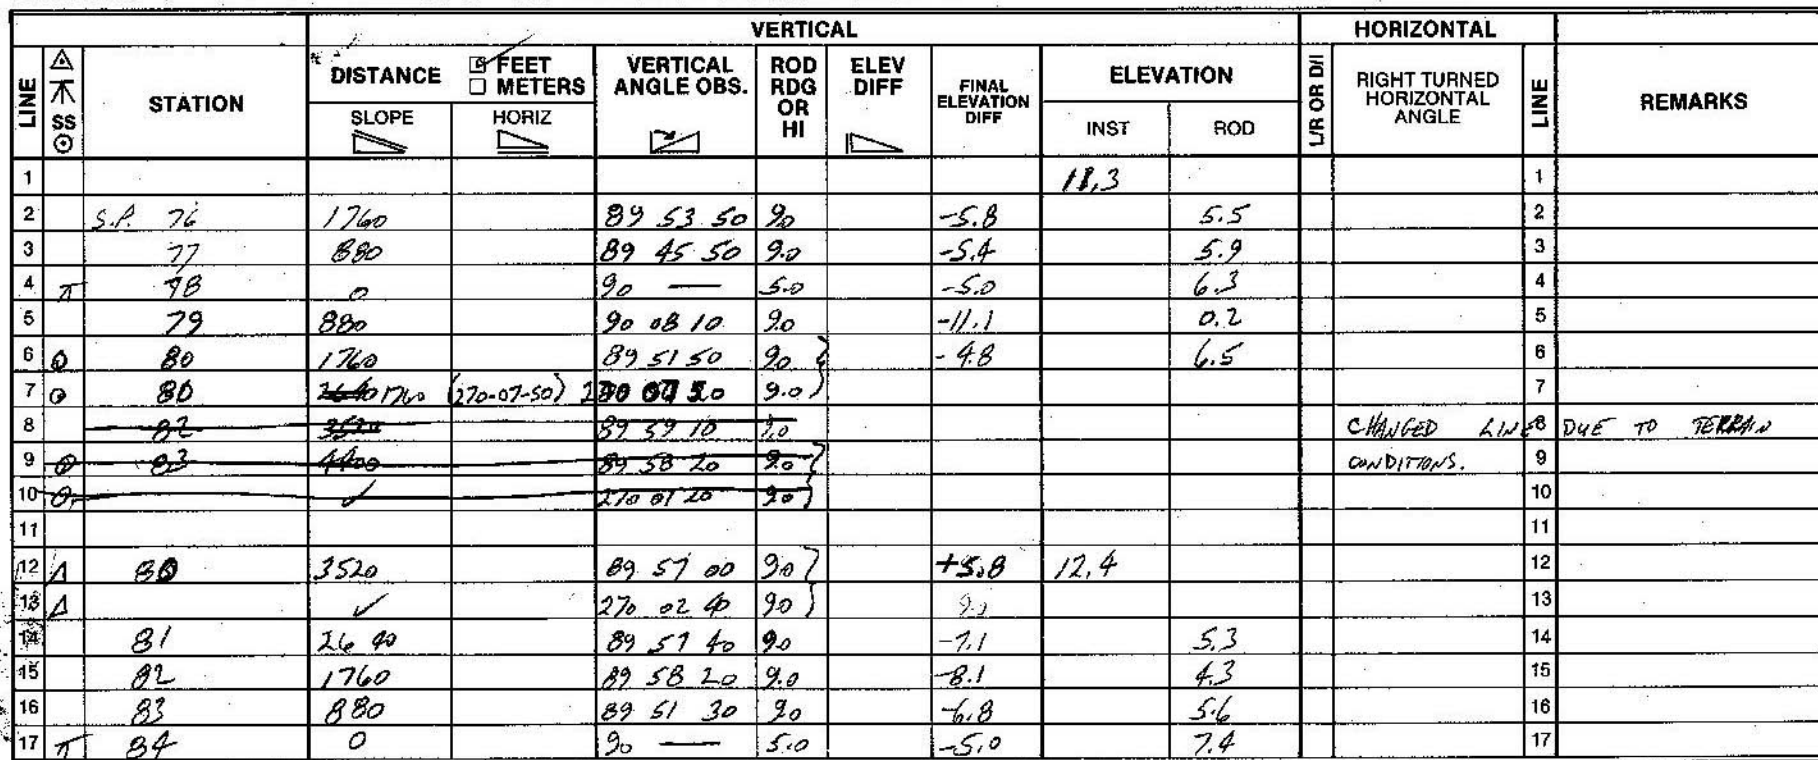 VERTICAL HORIZONTAL
LINE SS STATION DISTANCE FEET METERS VERTICAL ANGLE OBS. ROD RDG OR HI ELEV DIFF FINAL ELEVATION DIFF ELEVATION L/R OR D/I RIGHT TURNED HORIZONTAL ANGLE LINE REMARKS
SLOPE HORIZ INST ROD
1 18.3 1
2 S.P. 76 1760 89 53 50 9.0 -5.8 5.5 2
3 77 880 89 45 50 9.0 -5.4 5.9 3
4 π 78 0 90 — 5.0 -5.0 6.3 4
5 79 880 90 08 10 9.0 -11.1 0.2 5
6 80 1760 89 51 50 9.0 -4.8 6.5 6
7 80 2640 1760 (270-07-50) 9.0 7
8 82 3520 89 59 10 9.0 CHANGED LINE 8 DUE TO TERRAIN
9 83 4400 89 58 20 9.0 CONDITIONS. 9
10 ✓ 270 01 20 9.0 10
11 11
12 Δ 80 3520 89 57 00 9.0 +5.8 12.4 12
13 Δ ✓ 270 02 40 9.0 9.0 13
14 81 2640 89 57 40 9.0 -7.1 5.3 14
15 82 1760 89 58 20 9.0 -8.1 4.3 15
16 83 880 89 51 30 9.0 -6.8 5.6 16
17 π 84 0 90 — 5.0 -5.0 7.4 17